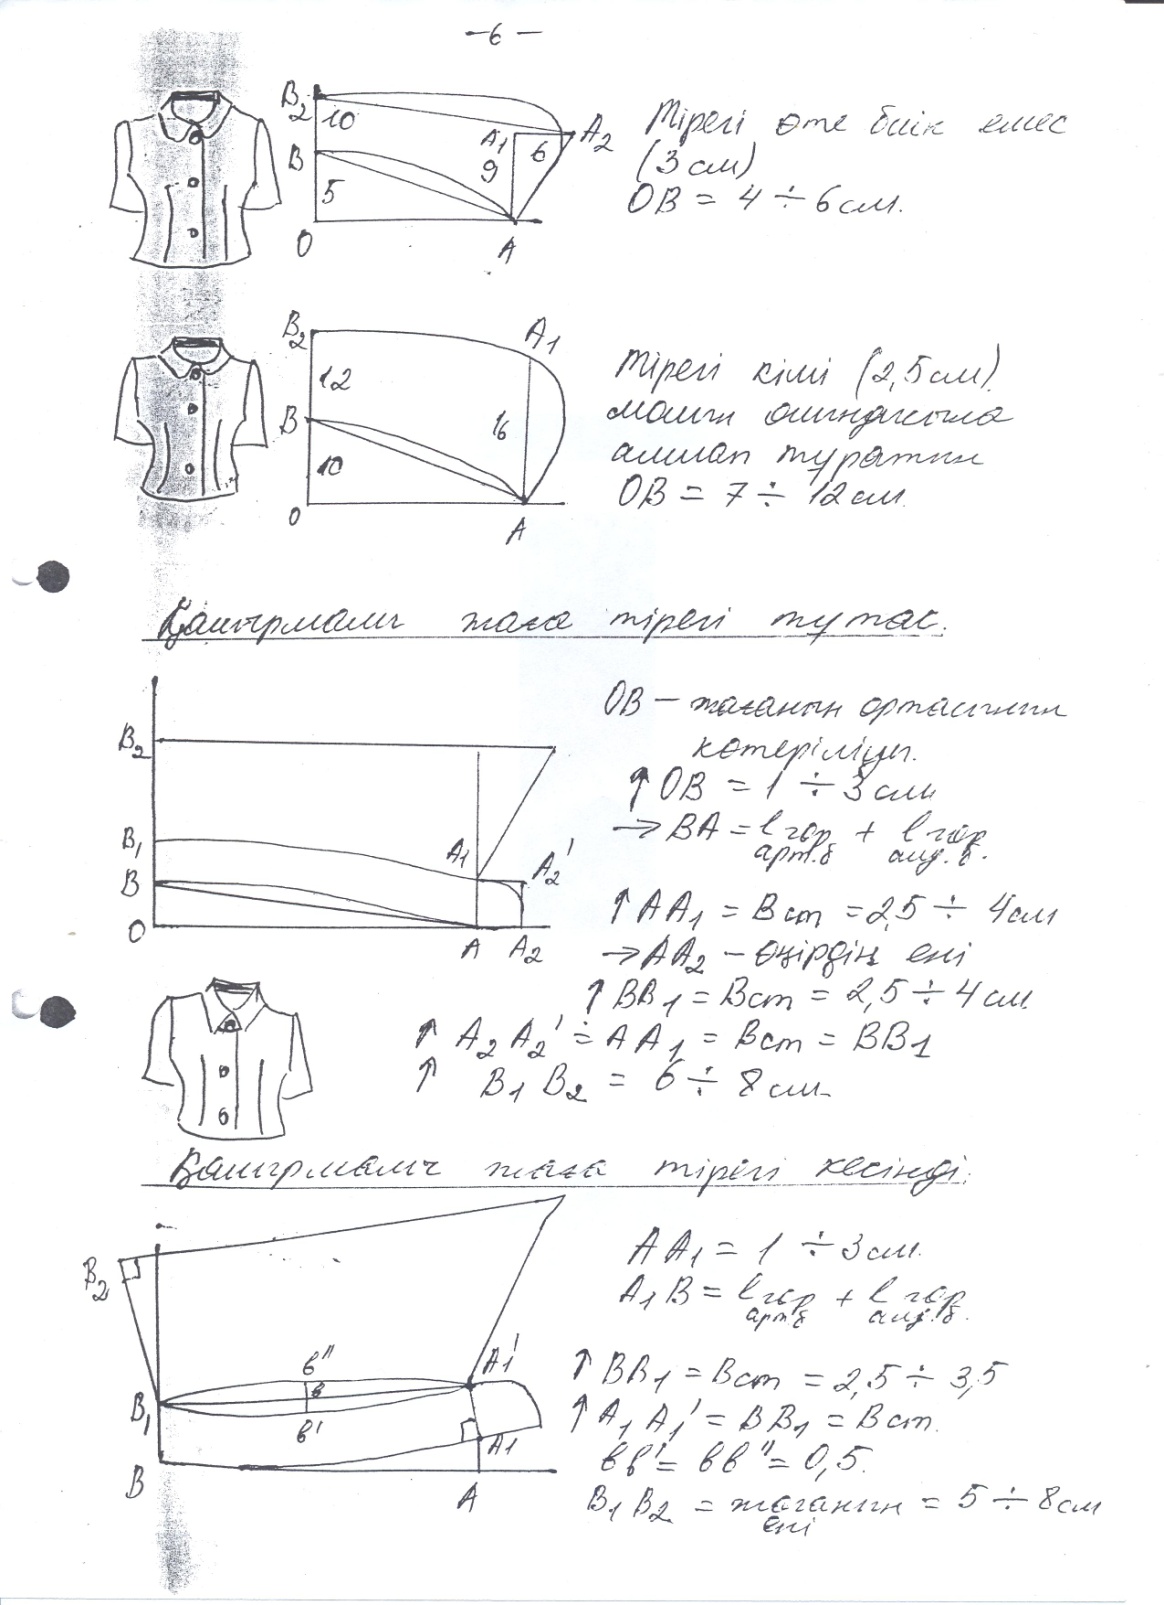 -6-
B2
10
A1
6
A2
9
B
5
O
A
Тірегі өте биік емес
(3 см)
OB = 4 ÷ 6 см.
B2
A1
12
B
16
10
O
A
Тірегі кіші (2,5 см)
мойын
тұратын
OB = 7 ÷ 12 см.
Қайырмалы жаға тірегі тұтас.
B2
B1
B
O
A1
A2'
A
A2
OB – жағаның ортасының
көтерілуі.
↑ OB = 1 ÷ 3 см
→ BA = l гор + l гор
арт.б алд.б.
↑ AA1 = Вст = 2,5 ÷ 4 см
→ AA2 – өңірдің ені
↑ BB1 = Вст = 2,5 ÷ 4 см
↑ A2 A2' = AA1 = Вст = BB1
↑ B1 B2 = 6 ÷ 8 см.
Қайырмалы жаға тірегі кесінді.
B2
в"
в
A1'
B1
в'
A1
B
A
AA1 = 1 ÷ 3 см.
A1 B = l гор + l гор
арт.б алд.б.
↑ BB1 = Вст = 2,5 ÷ 3,5
↑ A1 A1' = BB1 = Вст.
вв' = вв" = 0,5.
B1 B2 = жағаның = 5 ÷ 8 см
ені